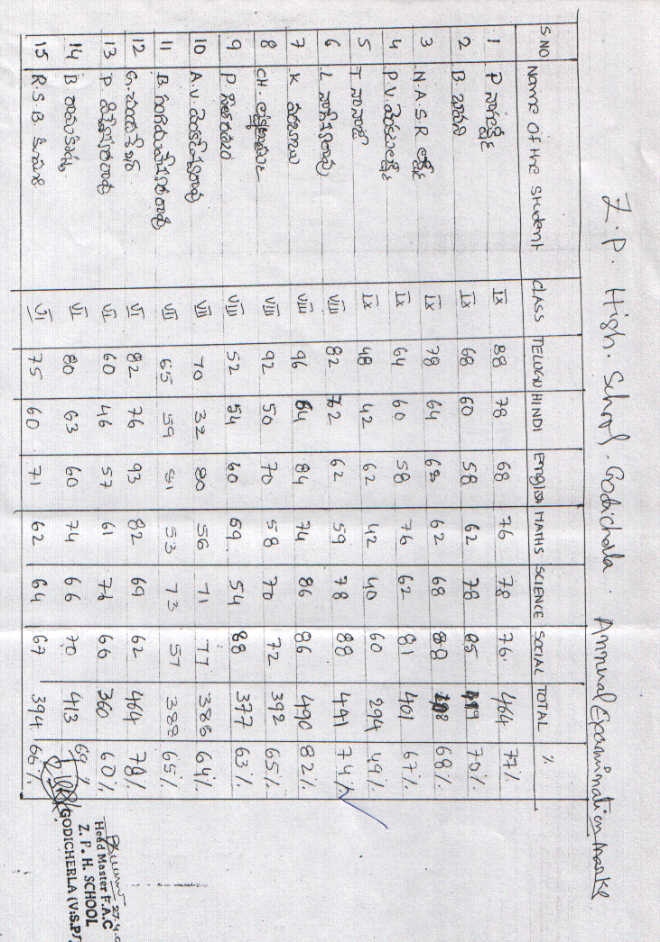 Z.P. High School. Godicherla. Annual Examination marks
S NO Name of the student CLASS TELUGU HINDI English MATHS SCIENCE SOCIAL TOTAL %
1 P నాగలక్ష్మి IX 88 78 68 76 78 76 464 77%
2 B. IX 68 60 58 62 78 419 70%
3 N.A.S.R లక్ష్మి IX 78 64 68 62 68 68%
4 P.V. IX 64 60 58 76 62 81 401 67%
5 T నానాజీ IX 48 42 62 42 40 60 294 49%
6 L నాగేశ్వరరావు VIII 82 72 62 59 78 88 441 74%
7 K VIII 96 64 84 74 86 86 490 82%
8 CH. VIII 92 50 70 58 70 72 392 65%
9 P VIII 52 54 60 69 54 88 377 63%
10 A.V. VII 70 32 80 56 71 77 386 64%
11 B. VII 65 59 81 53 73 57 388 65%
12 G. VI 82 76 93 82 69 62 464 78%
13 P VI 60 46 57 61 66 360 60%
14 B VI 80 63 60 74 66 70 413 69%
15 R.S.B. VI 75 60 71 62 64 67 394 66%
Head Master F.A.C
Z. P. H. SCHOOL
GODICHERLA (V.S.P)